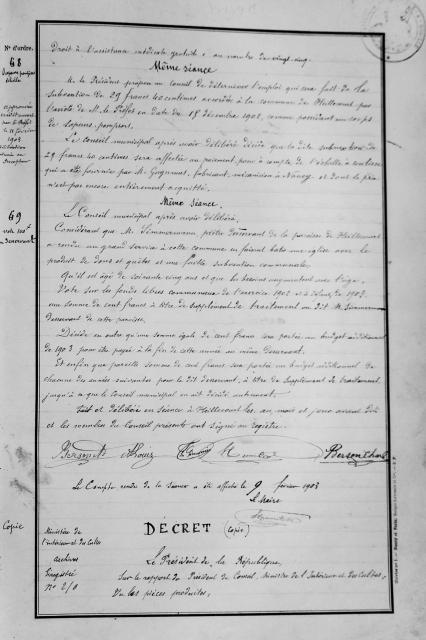 Droit à l'assistance médicale gratuite : au nombre de vingt-cinq.
Même séance
N° d'ordre.
68
M. le Président propose au Conseil de déterminer l'emploi qui sera fait de la
subvention de 29 francs 40 centimes accordée à la commune de Heillecourt par
l'arrêté de M. le Préfet en date du 15 décembre 1902, comme possédant un corps
de sapeurs-pompiers.
approuvée
par le Préfet
février
1903
Le Conseil municipal après avoir délibéré décide que la dite subvention de
29 francs 40 centimes sera affectée au paiement, pour à compte de l'échelle à coulisse
qui a été fournie par M. fabricant, mécanicien à Nancy et dont le prix
n'est pas encore entièrement acquitté.
Même séance.
69
vote 100f
Desservant
Le Conseil municipal après avoir délibéré,
Considérant que M. Zimmermann, prêtre desservant de la paroisse de Heillecourt
a rendu un grand service à cette commune en faisant bâtir une église avec le
produit de dons et quêtes et une faible subvention communale.
Qu'il est âgé de soixante cinq ans et que les besoins augmentent avec l'âge.
Vote sur les fonds libres communaux de l'exercice 1902 et à celui de 1903
une somme de cent francs à titre de supplément de traitement au dit M. Zimmermann
desservant de cette paroisse.
Décide en outre qu'une somme égale de cent francs sera portée au budget additionnel
de 1903 pour être payée à la fin de cette année au même desservant.
Et enfin que pareille somme de cent francs sera portée au budget additionnel de
chacune des années suivantes pour le dit desservant, à titre de supplément de traitement
jusqu'à ce que le Conseil municipal en ait décidé autrement.
Fait et délibéré en séance à Heillecourt les, an, mois et jour avant dits
et les membres du Conseil présents ont signé au registre.
Le Compte rendu de la séance a été affiché le 9 février 1903
Le Maire
Copie
Ministère de
l'intérieur et des Cultes
archives
Enregistré
N° 2/8
DÉCRET (Copie)
Le Président de la République,
Sur le rapport du Président du Conseil, Ministre de l'Intérieur et des Cultes,
Vu les pièces produites,